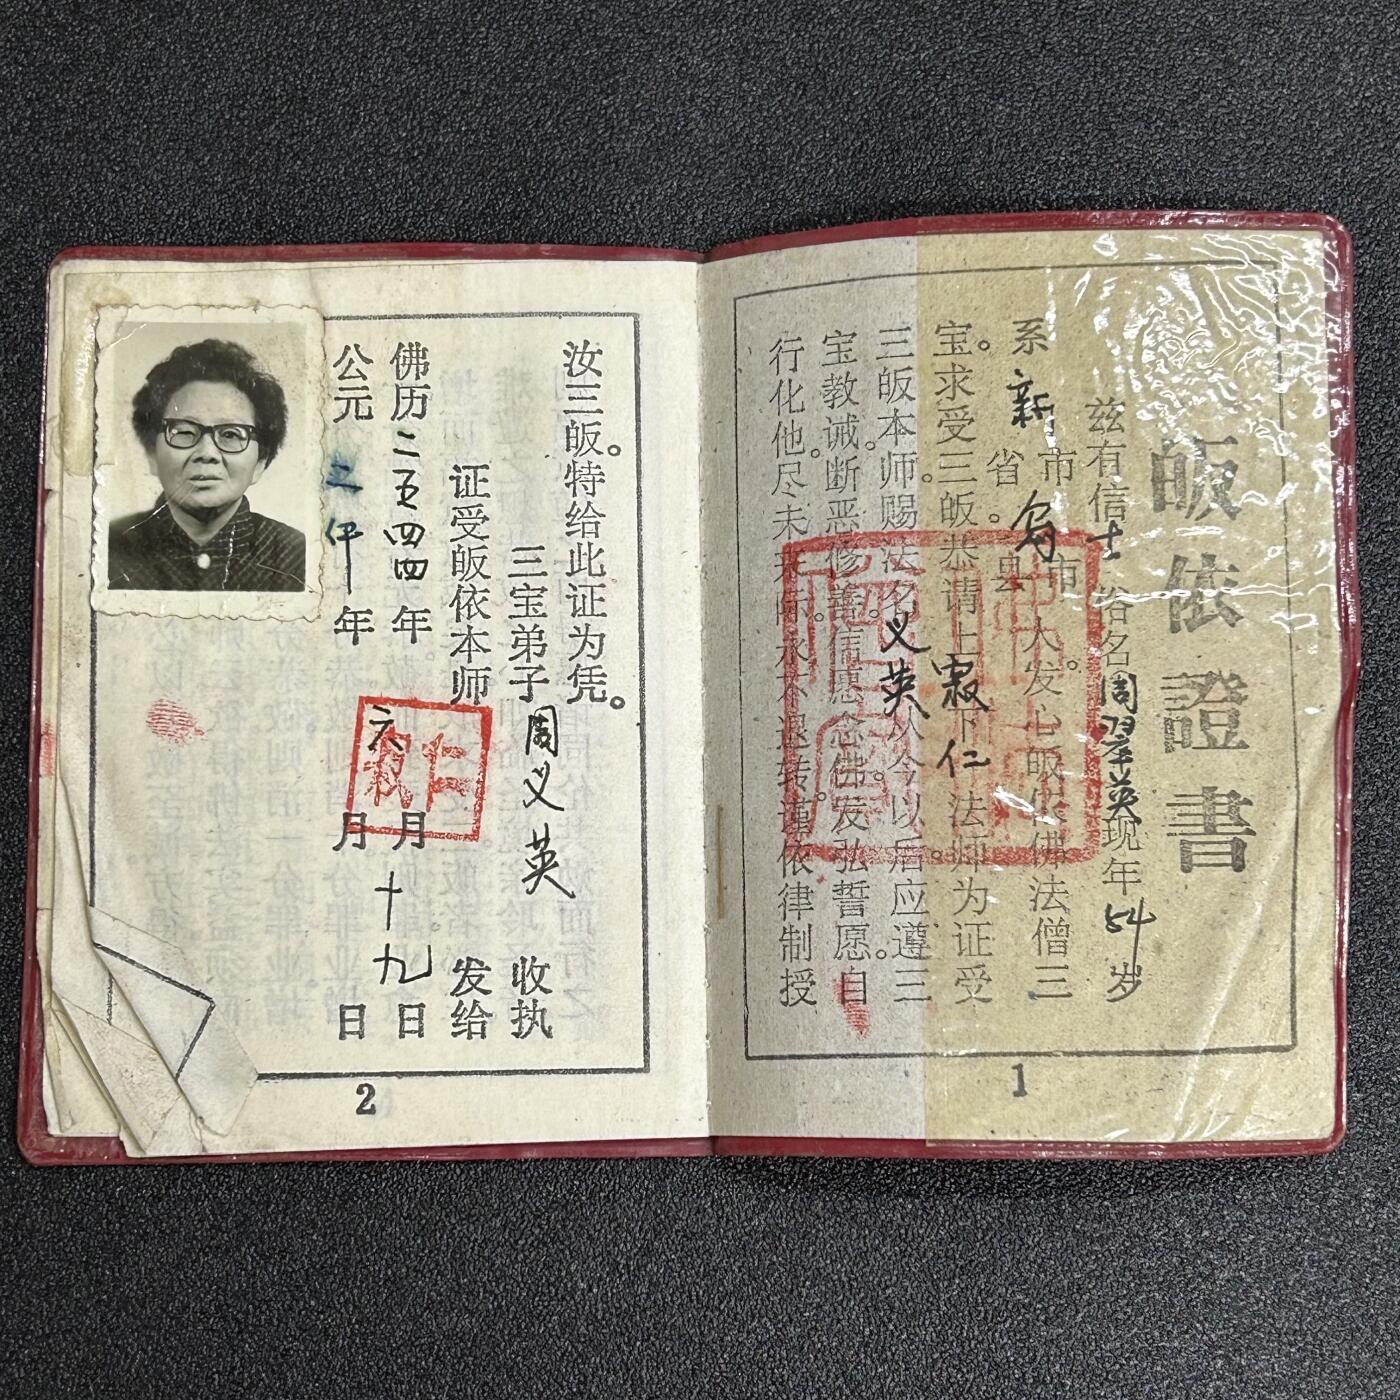 皈依證書
兹有信士 俗名周翠英现年54岁
系新 省。乌 县 市 市 人。发心皈依佛法僧三
宝。求受三皈恭请上寂下仁法师为证受
三皈本师。赐法名义英。从今以后应遵三
宝教诫。断恶修善。信愿念佛。发弘誓愿。自
行化他。尽未来际。永不退转。谨依律制授
1
汝三皈。特给此证为凭。
三宝弟子周义英 收执
证受皈依本师 发给
佛历二五四四年六月十九日
公元 年 月 日
2